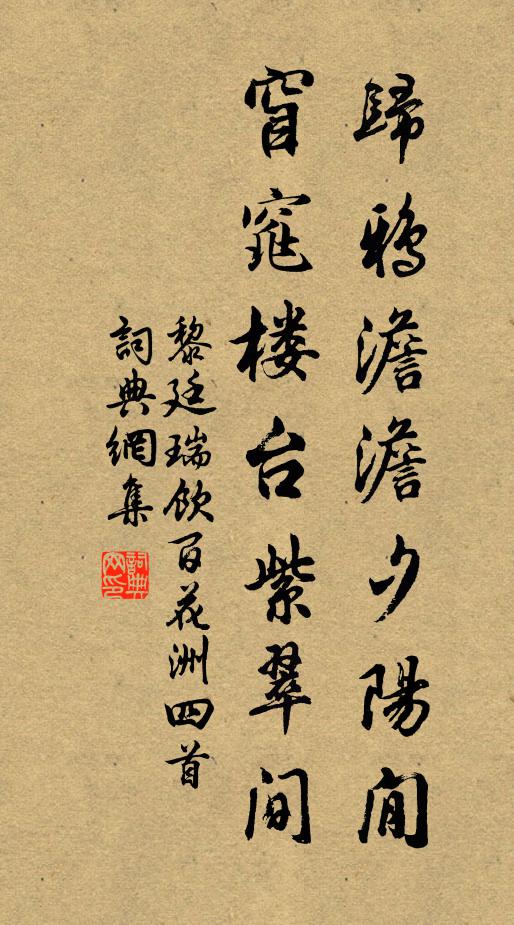 歸鴉澹澹夕陽閒
窅窕楼台紫翠间
黎廷瑞飲百花洲四首
詞典網集
詞典網印